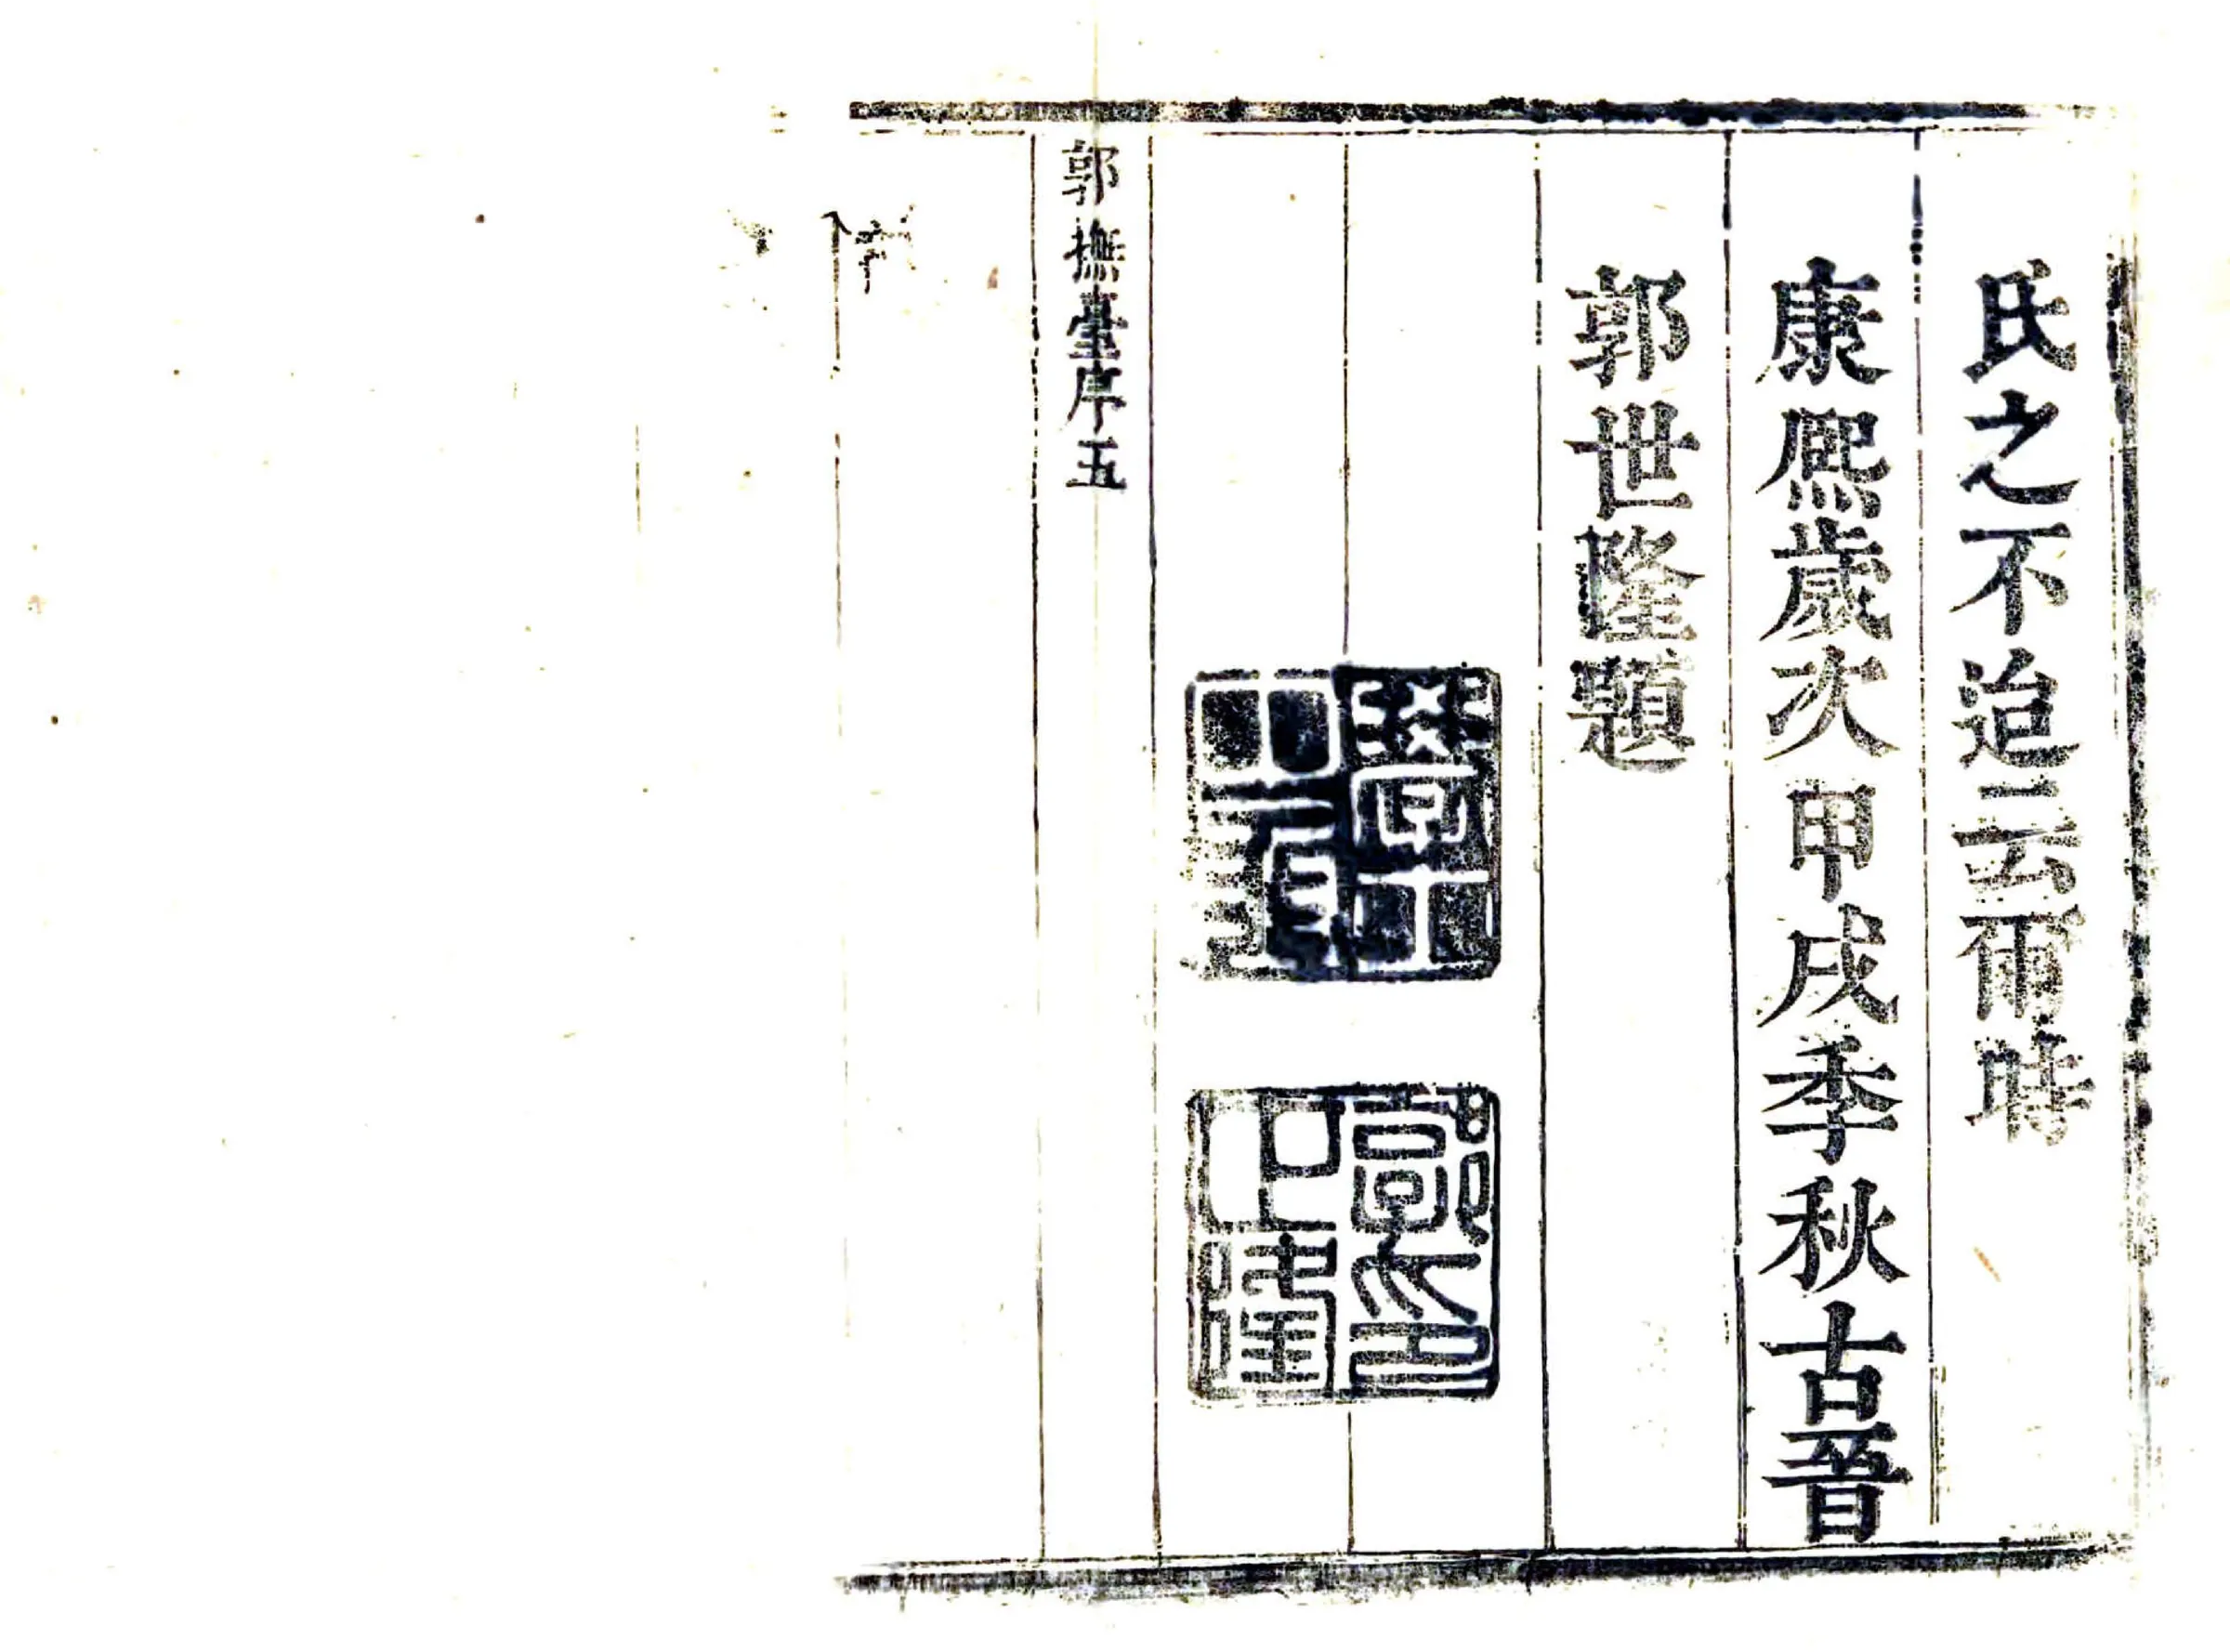 氏之不迨云爾時
康熙歲次甲戌季秋古晉
郭世隆題
郭印
世隆
郭撫臺序五